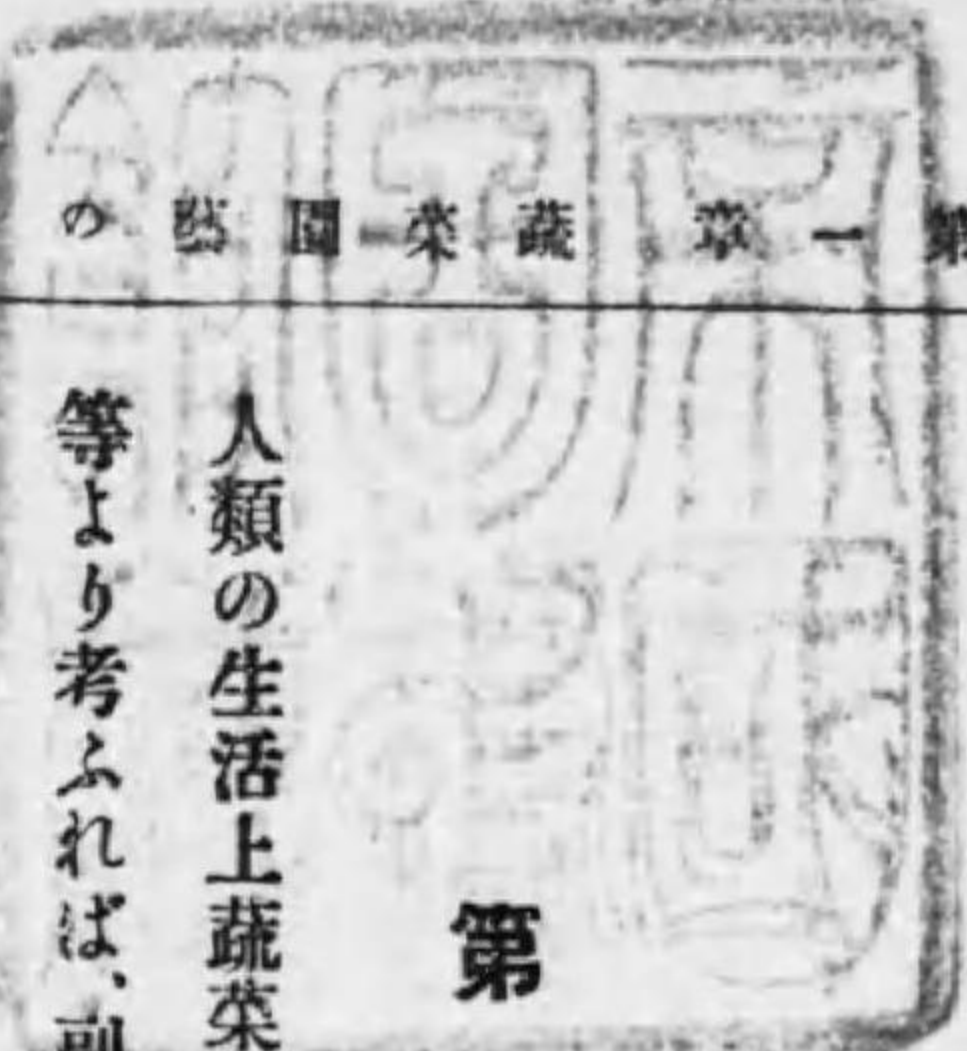 第一章 蔬菜園藝の
第
人類の生活上蔬菜
等より考ふれば、副